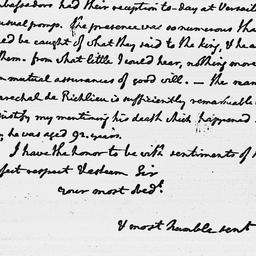 bassadors had their reception to-day at Versail
usual pomp. the presence was so numerous tha
ed be caught of what they said to the king, & he a
them. from what little I could hear, nothing more
n mutual assurances of good will. — the mar
arechal de Richlieu is sufficiently remarkable
justify my mentioning his death which happened
, he was aged 92. years.
I have the honor to be with sentiments of
fect respect & esteem Sir
your most obedt.
& most humble servt